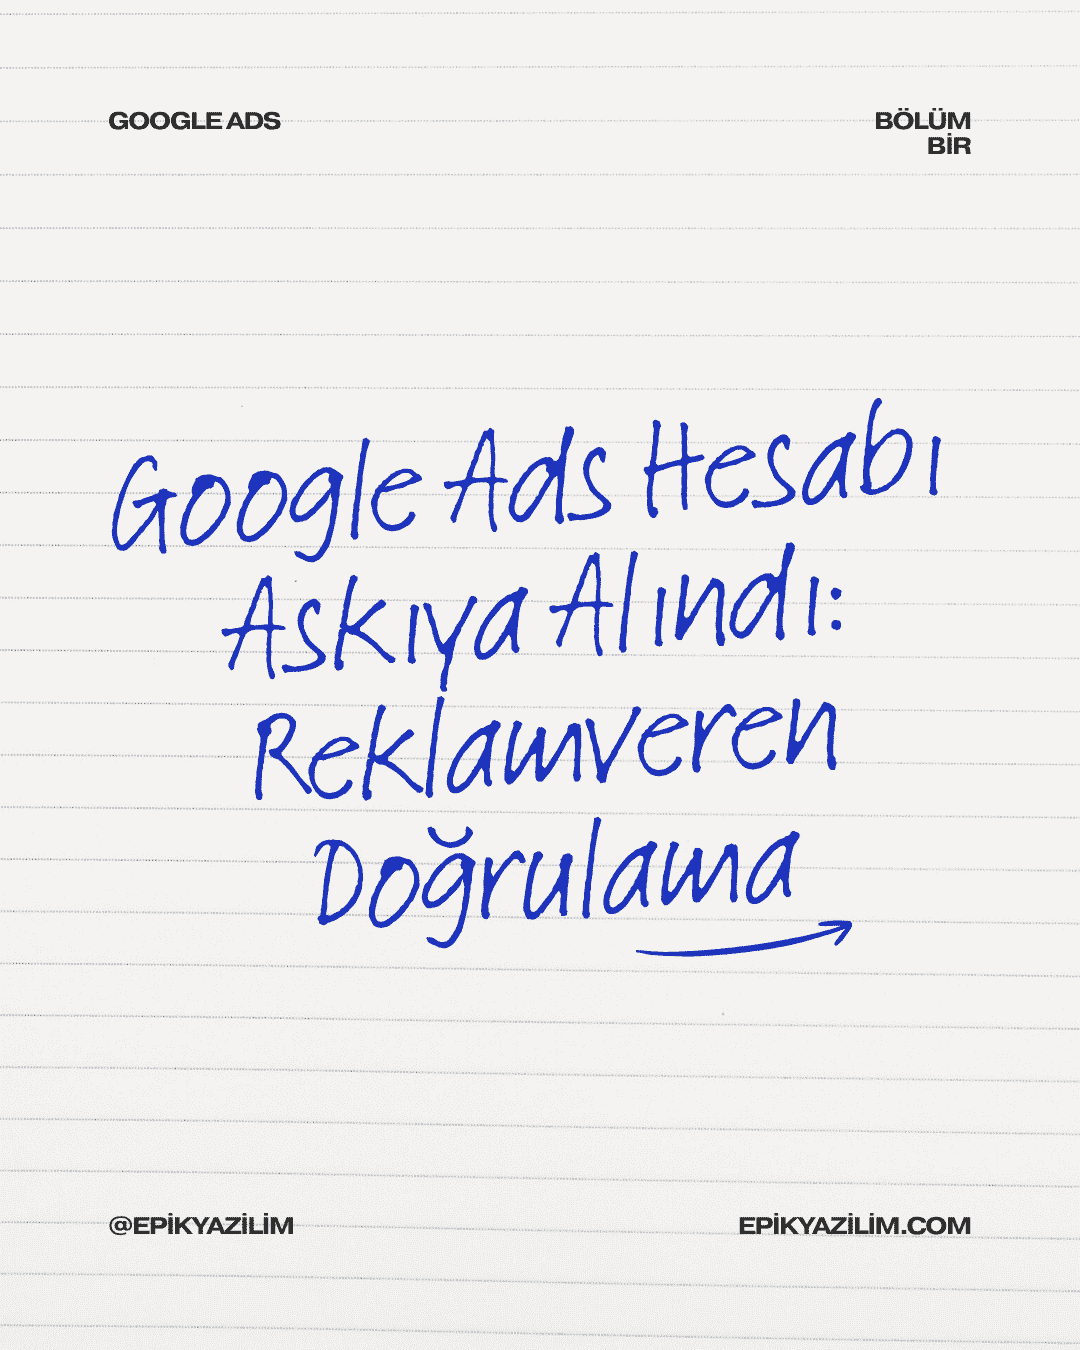 GOOGLE ADS
BÖLÜM
BİR
Google Ads Hesabı
Askıya Alındı:
Reklamveren
Doğrulama
@EPİKYAZİLİM
EPİKYAZİLİM.COM